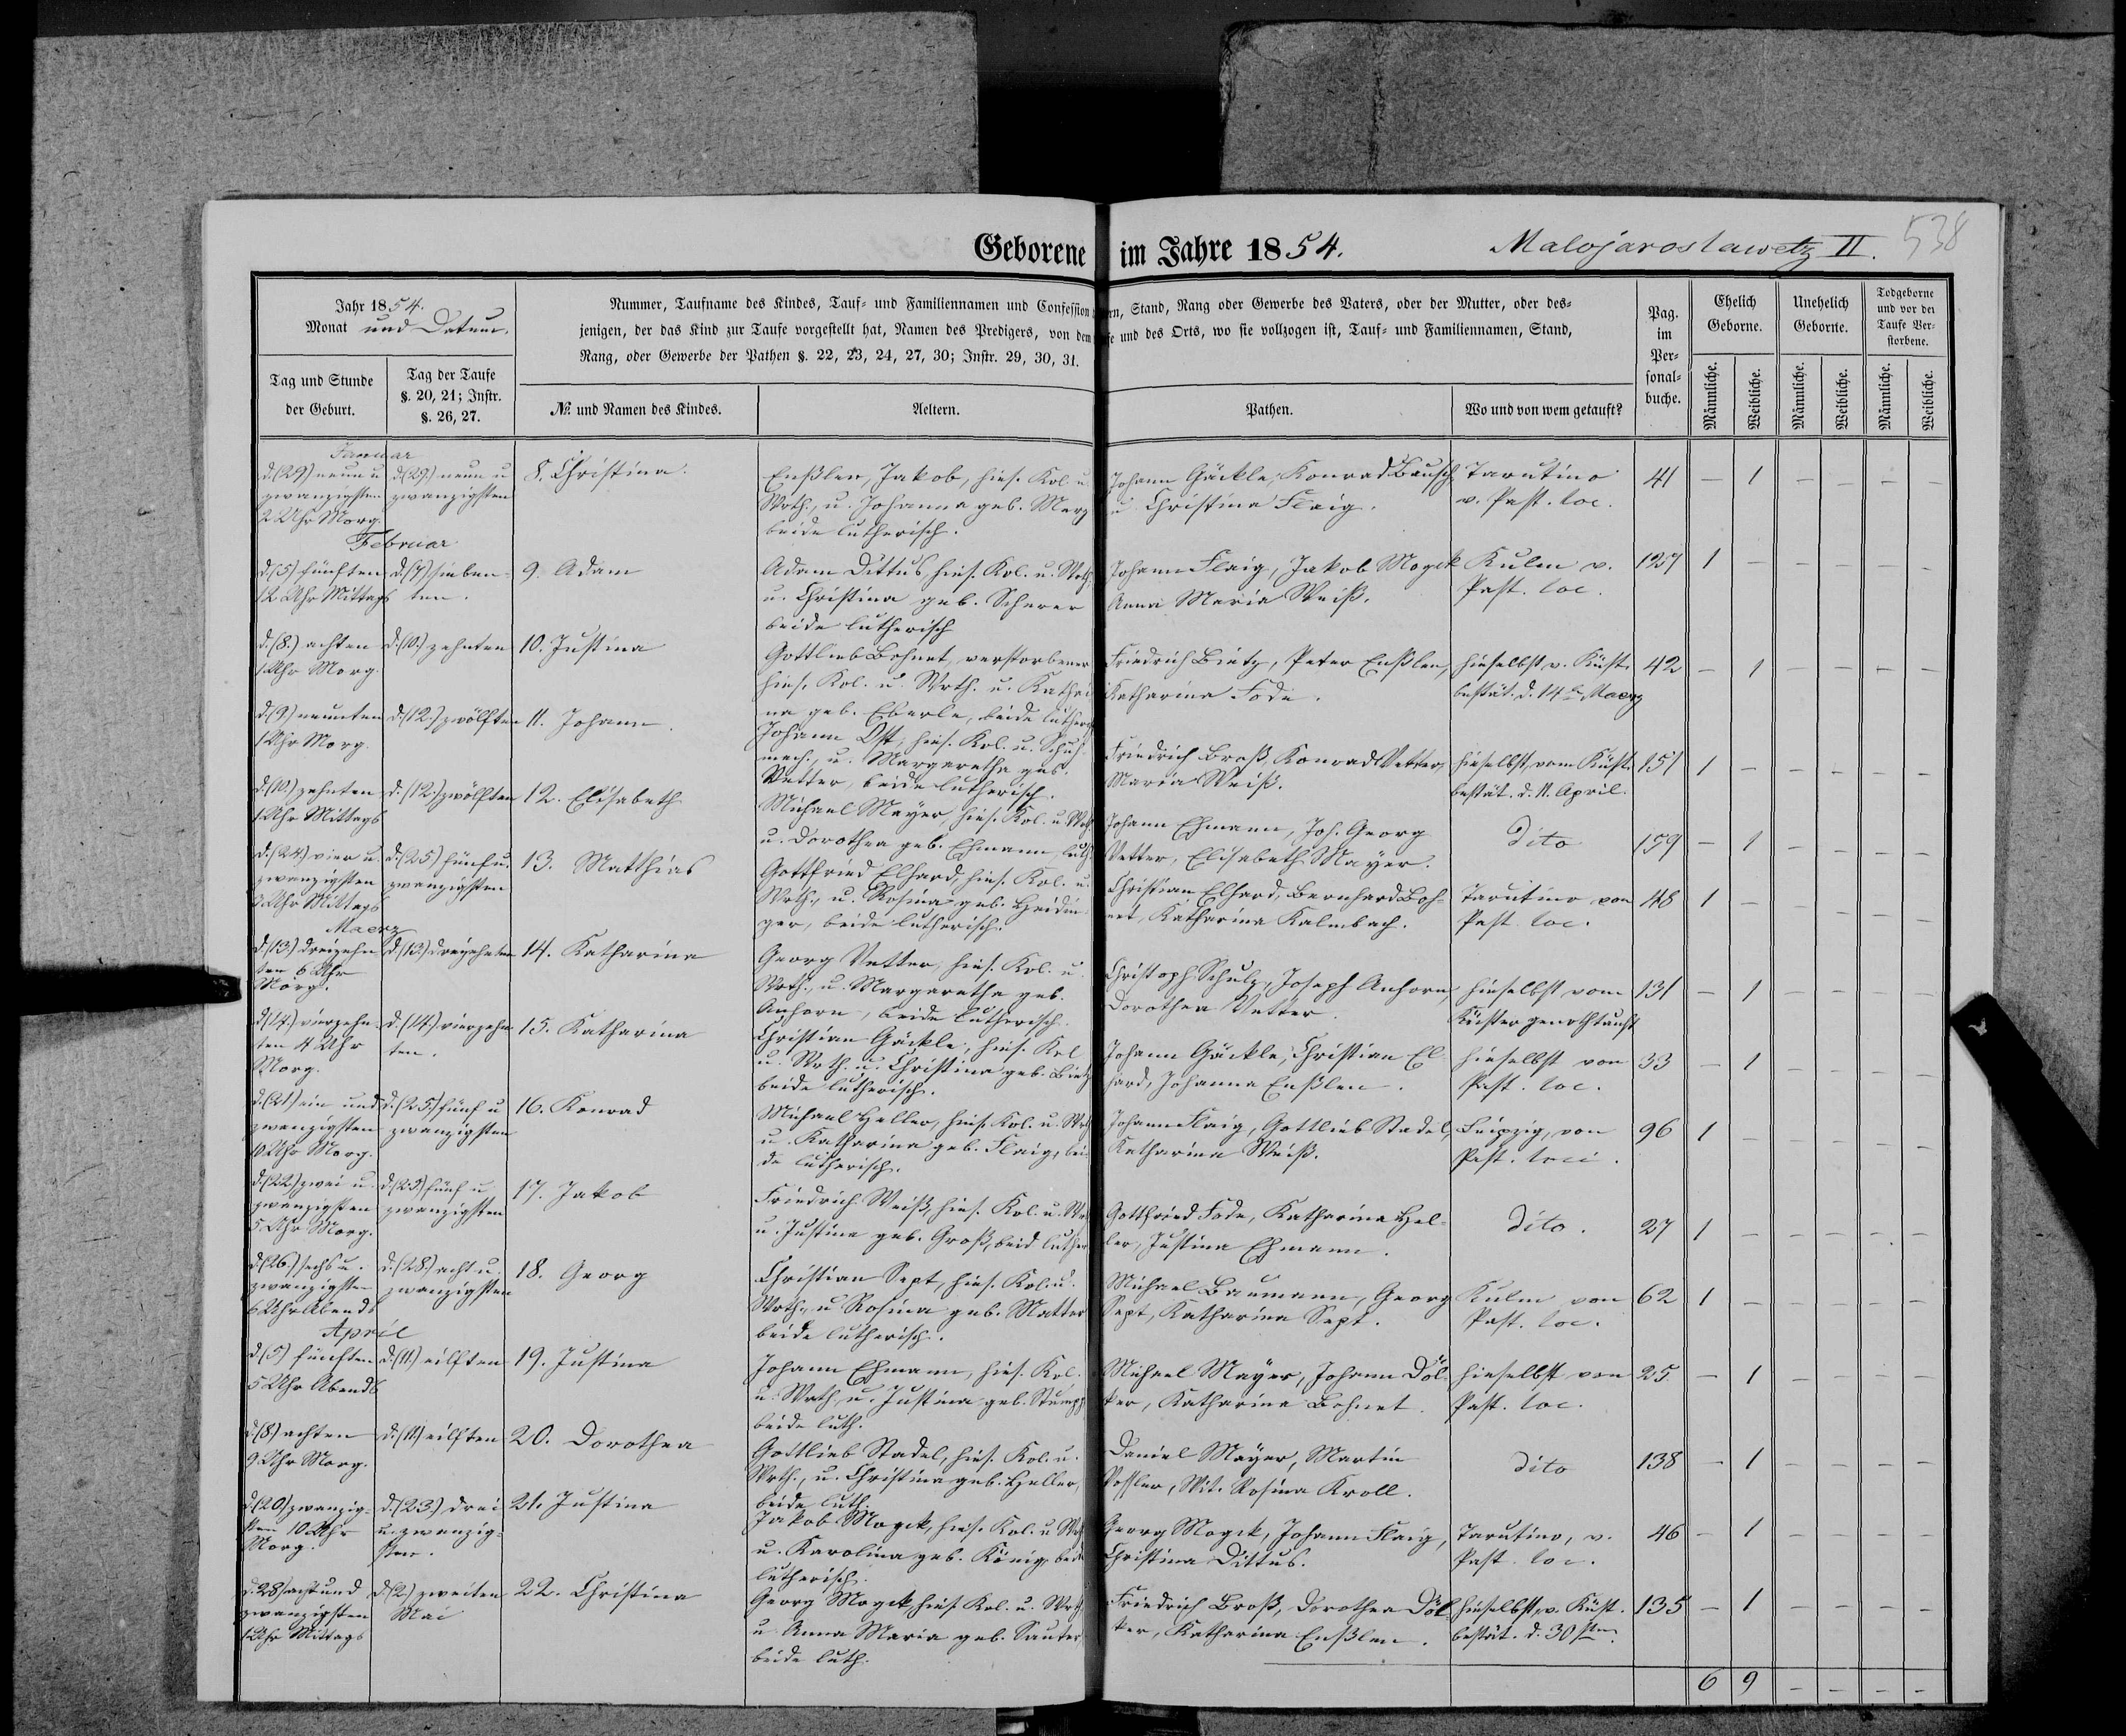 Geborene im Jahre 1854.
Malojaroslawetz II.
538
Jahr 1854.
Monat und Datum.
Nummer, Taufname des Kindes, Tauf- und Familiennamen und Confession
rn, Stand, Rang oder Gewerbe des Vaters, oder der Mutter, oder des-
jenigen, der das Kind zur Taufe vorgestellt hat, Namen des Predigers, von dem
fe und des Orts, wo sie vollzogen ist, Tauf- und Familiennamen, Stand,
Rang, oder Gewerbe der Pathen §. 22, 23, 24, 27, 30; Instr. 29, 30, 31.
Pag. im Per- sonal- buche.
Ehelich Geborne.
Unehelich Geborne.
Todgeborne und vor der Taufe Ver- storbene.
Tag und Stunde der Geburt.
Tag der Taufe §. 20, 21; Instr. §. 26, 27.
№ und Namen des Kindes.
Aeltern.
Pathen.
Wo und von wem getauft?
Männliche. Weibliche. Männliche. Weibliche. Männliche. Weibliche.
Januar
d. (29) neun u zwanzigsten 2 Uhr Morg.
d. (29.) neun u zwanzigsten
8. Christina.
Enßlen, Jakob, hies. Kol. u.
Wrth., u. Johanna geb. Merz
beide lutherisch.
Johann Gäckle, Konrad Bausch
u. Christina Flaig.
Tarutino
v. Past. loc.
41 — 1 — — — —
Februar
d. (5) fünften 12 Uhr Mittags
d. (7) sieben- ten.
9. Adam
Adam Dittus hies. Kol. u. Wrth.
u. Christina geb. Scherer
beide lutherisch
Johann Flaig, Jakob Mogck
Anna Maria Weiß.
Kulm v.
Past. loc.
127 1 — — — — —
d. (8.) achten 1 Uhr Morg.
d. (10.) zehnten
10. Justina
Gottlieb Bohnet, verstorbener
hies. Kol. u. Wrth. u. Kathri
na geb. Eberle, beide luther.
Friedrich Bietz, Peter Enßlen,
Katharina Fode.
hieselbst v. Küst.
bestät. d. 14ten Maerz
42 — 1 — — — —
d. (9.) neunten 1 Uhr Morg.
d. (12.) zwölften
11. Johann.
Johann Ost, hies. Kol. u. Schuh-
mach., u. Margaretha geb.
Vetter, beide lutherisch.
Friedrich Broß, Konrad Vetter,
Maria Weiß.
hieselbst, vom Küst.
bestät. d. 11. April.
151 1 — — — — —
d. (10.) zehnten 1 Uhr Mittags
d. (12.) zwölften
12. Elisabeth
Michael Mayer, hies. Kol. u. Wrth.
u. Dorothea geb. Ehmann, luth.
Johann Ehmann, Joh. Georg
Vetter, Elisabeth Mayer.
dito
159 — 1 — — — —
d. (24) vier u. zwanzigsten Uhr Mittags
d. (25) fünf u. zwanzigsten
13. Matthias
Gottfried Elhard, hies. Kol. u.
Wrth., u. Rosina geb. Heidin-
ger, beide lutherisch.
Christian Elhard, Bernhard Boh-
net, Katharina Kalmbach.
Tarutino von
Past. loc.
48 1 — — — — —
Maerz
d. (13.) dreizehn- ten 6 Uhr Morg.
d. (13.) dreizehnten
14. Katharina
Georg Vetter, hies. Kol. u.
Wrth., u. Margaretha geb.
Anhorn, beide lutherisch.
Christoph Schulz, Joseph Anhorn,
Dorothea Vetter.
hieselbst vom
Küster genothtauft
131 — 1 — — — —
d. (14.) vierzehn- ten 4 Uhr Morg.
d. (14.) vierzehn- ten.
15. Katharina
Christian Gäckle, hies. Kol
u. Wrth. u. Christina geb. Bietz
beide lutherisch.
Johann Gäckle, Christian El-
hard, Johanna Enßlen.
hieselbst von
Past. loc.
33 — 1 — — — —
d. (21.) ein und zwanzigsten 10 Uhr Morg.
d. (25.) fünf u zwanzigsten
16. Konrad
Michael Heller, hies. Kol. u. Wrth
u. Katharina geb. Flaig, bei
de lutherisch.
Johann Flaig, Gottlieb Stadel,
Katharina Weiß.
Leipzig, von
Past. loci.
96 1 — — — — —
d. (22.) zwei u. zwanzigsten 5 Uhr Morg.
d. (25) fünf u zwanzigsten
17. Jakob
Friedrich Weiß, hies. Kol. u. Wrth
u. Justina geb. Groß, beid luther
Gottfried Fode, Katharina Hel-
ler, Justina Ehmann.
dito.
27 1 — — — — —
d. (26.) sechs u. zwanzigsten 6 Uhr Abends
d. (28.) acht u. zwanzigsten
18. Georg
Christian Sept, hies. Kol. u.
Wrth., u Rosina geb. Matter
beide lutherisch.
Michael Baumann, Georg
Sept, Katharina Sept.
Kulm von
Past. loc.
62 1 — — — — —
April
d. (5) fünften 5 Uhr Abends
d. (11.) eilften
19. Justina
Johann Ehmann, hies. Kol.
u. Wrth. u. Justina geb. Stumpp
beide luth.
Michael Mayer, Johann Döl-
ker, Katharina Bohnet.
hieselbst von
Past. loc.
25 — 1 — — — —
d. (8) achten 9 Uhr Morg.
d. (11.) eilften
20. Dorothea
Gottlieb Stadel, hies. Kol. u.
Wrth., u. Christina geb. Heller,
beide luth.
Daniel Mayer, Martin
Wit. Rosina Kroll.
dito
138 — 1 — — — —
d. (20) zwanzig- sten 10 Uhr Morg.
d. (23.) drei u. zwanzig- sten.
21. Justina
Jakob Mogck, hies. Kol. u Wrth
u. Karolina geb. König, beide
lutherisch.
Georg Mogck, Johann Flaig,
Christina Dittus.
Tarutino, v.
Past. loc.
46 — 1 — — — —
d. 28) acht und zwanzigsten 1 Uhr Mittags
d. (2.) zweiten Mai
22. Christina
Georg Mogck, hies. Kol. u. Wrth
u. Anna Maria geb. Sauter,
beide luth.
Friedrich Broß, Dorothea Döl-
ker, Katharina Enßlen.
hieselbst, v. Küst.
bestät. d. 30sten
135 — 1 — — — —
6 9 — — — —